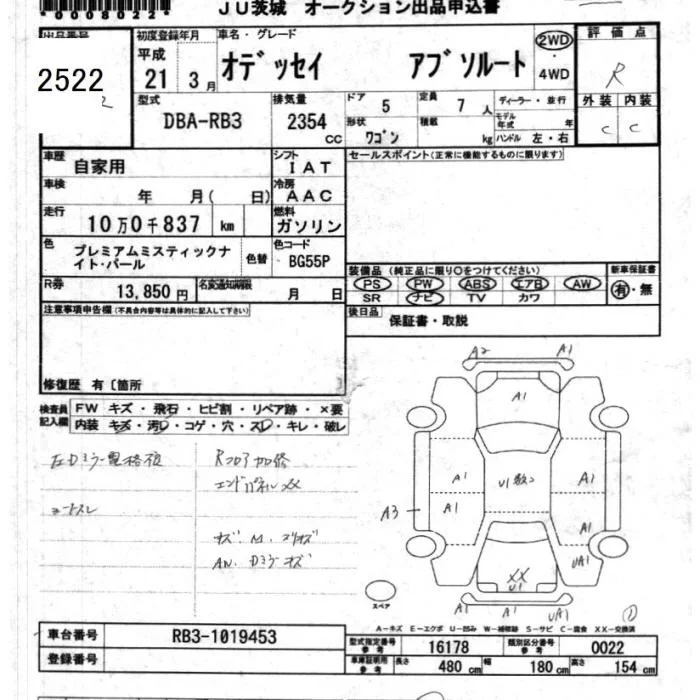 *0008022*
JU茨城 オークション出品申込書
出品番号 初度登録年月 車名・グレード 2WD・4WD 評価点
2522 平成 21 3月 オデッセイ アブソルート R
型式 排気量 ドア 5 定員 7人 ディーラー・並行 外装 内装
DBA-RB3 2354cc 形状 ワゴン 積載 kg モデル年式 年 ハンドル 左・右 C C
車歴 自家用 シフト IAT セールスポイント(正常に機能するものに限ります)
車検 年 月( 日) 冷房 AAC
走行 10万0千837 km 燃料 ガソリン
色 プレミアムミスティックナイト・パール 色替 色コード BG55P
装備品(純正品に限り○をつけてください) 新車保証書
PS PW ABS エアB AW 有・無
SR ナビ TV カワ
R券 13,850円 名変通知期限 月 日
後日品 保証書・取説
注意事項申告欄(不具合内容等は具体的に記入して下さい)
修復歴 有〔箇所 〕
検査員記入欄 FW キズ・飛石・ヒビ割・リペア跡・×要
内装 キズ・汚レ・コゲ・穴・スレ・キレ・破レ
Rフロア加修
エンドパネルXX
A2 A1
A1
A1 U1 A1
A3 A1 A1
UA1
XX
U1
A1 UA1
スペア
A-キズ E-エクボ U-凹み W-補修跡 S-サビ C-腐食 XX-交換済
車台番号 RB3-1019453
登録番号
型式指定番号 参考 16178 類別区分番号 参考 0022
車庫証明用 参考 長さ 480cm 幅 180cm 高さ 154cm